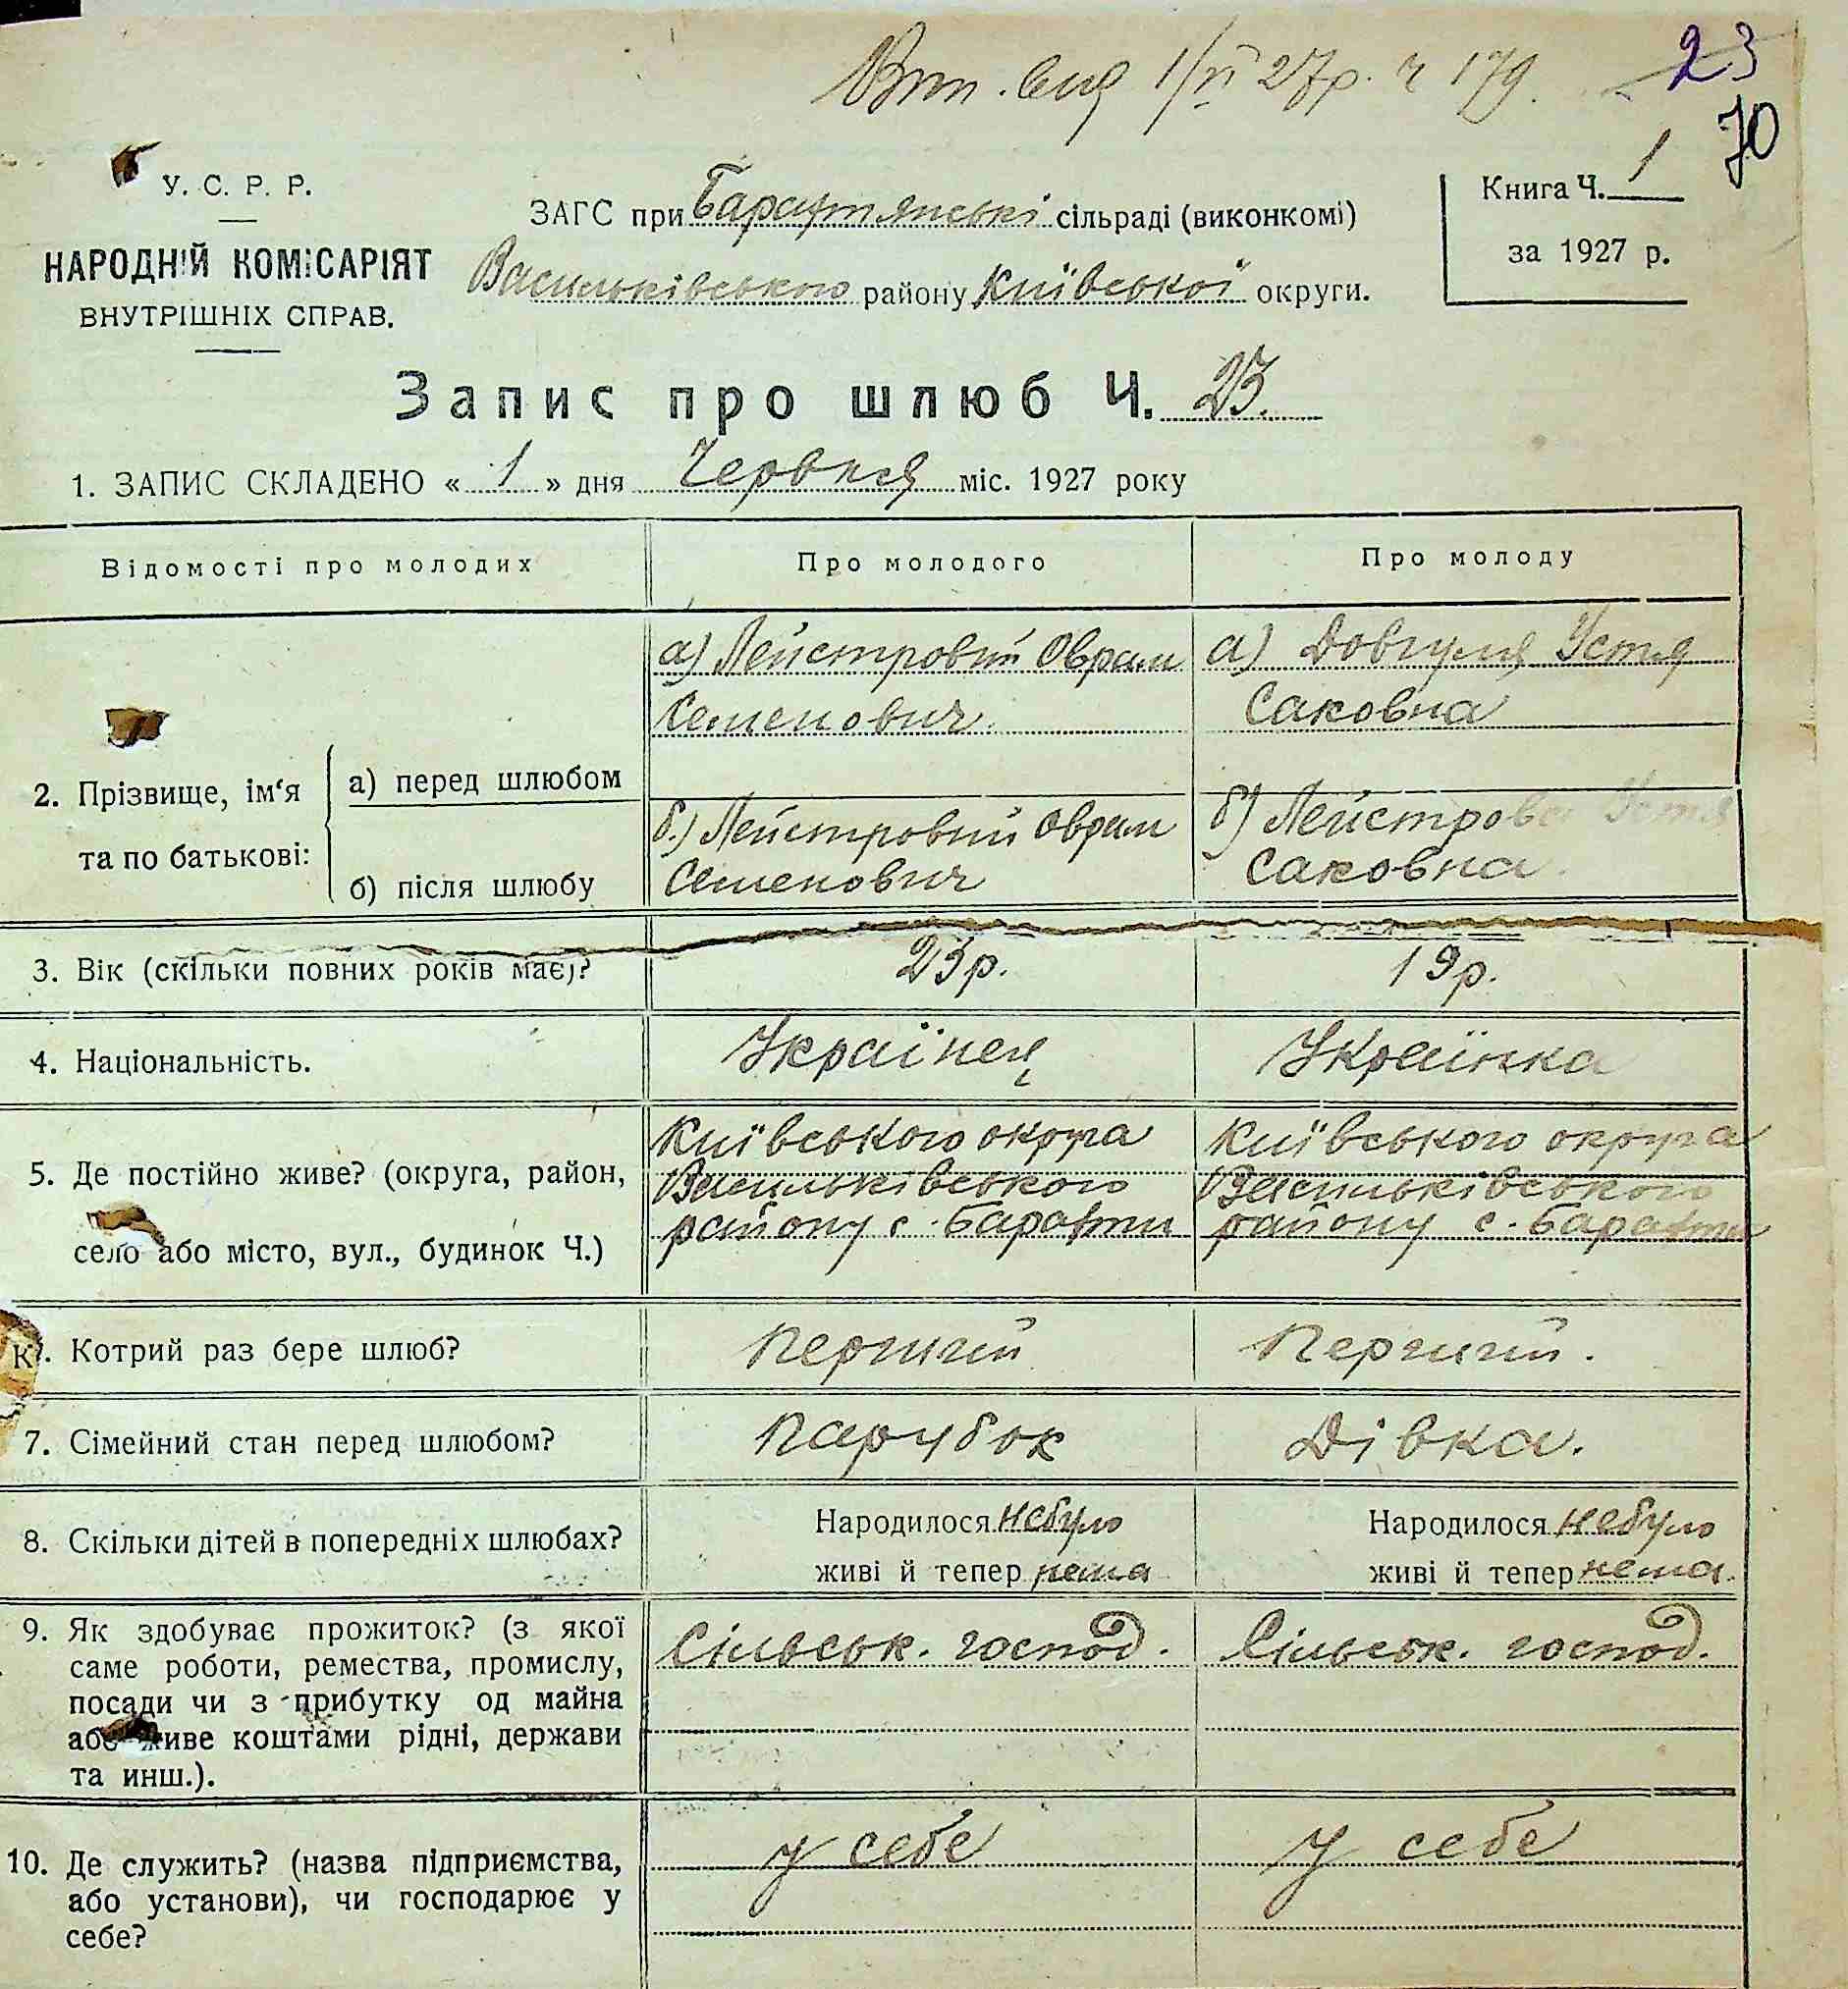 Вип. вид 1/VI 27р. ч 179.
23
70
У. С. Р. Р.
НАРОДНІЙ КОМІСАРІЯТ
ВНУТРІШНІХ СПРАВ.
ЗАГС при Барахтянські сільраді (виконкомі)
Васильківського району Київської округи.
Книга Ч. 1
за 1927 р.
Запис про шлюб Ч. 23.
1. ЗАПИС СКЛАДЕНО « 1 » дня Червня міс. 1927 року
Відомості про молодих
Про молодого
Про молоду
2. Прізвище, ім‘я
та по батькові:
а) перед шлюбом
б) після шлюбу
а) Лейстровий Оврам
Семенович.
а) Довгуля Устя
Саковна
б.) Лейстровий Оврам
Семенович
б) Лейстрова Устя
Саковна.
3. Вік (скільки повних років має)?
23р.
19р.
4. Національність.
Українец
Українка
5. Де постійно живе? (округа, район,
село або місто, вул., будинок Ч.)
Київського округа
Васильківського
району с. Барахти
Київського округа
Васильківського
району с. Барахти
К. Котрий раз бере шлюб?
Перший
Перший.
7. Сімейний стан перед шлюбом?
Парубок
Дівка.
8. Скільки дітей в попередніх шлюбах?
Народилося небуло
живі й тепер нема
Народилося небуло
живі й тепер нема.
9. Як здобуває прожиток? (з якої
саме роботи, ремества, промислу,
посади чи з прибутку од майна
або живе коштами рідні, держави
та инш.).
Сільськ. господ.
Сільськ. господ.
10. Де служить? (назва підприємства,
або установи), чи господарює у
себе?
у себе
у себе